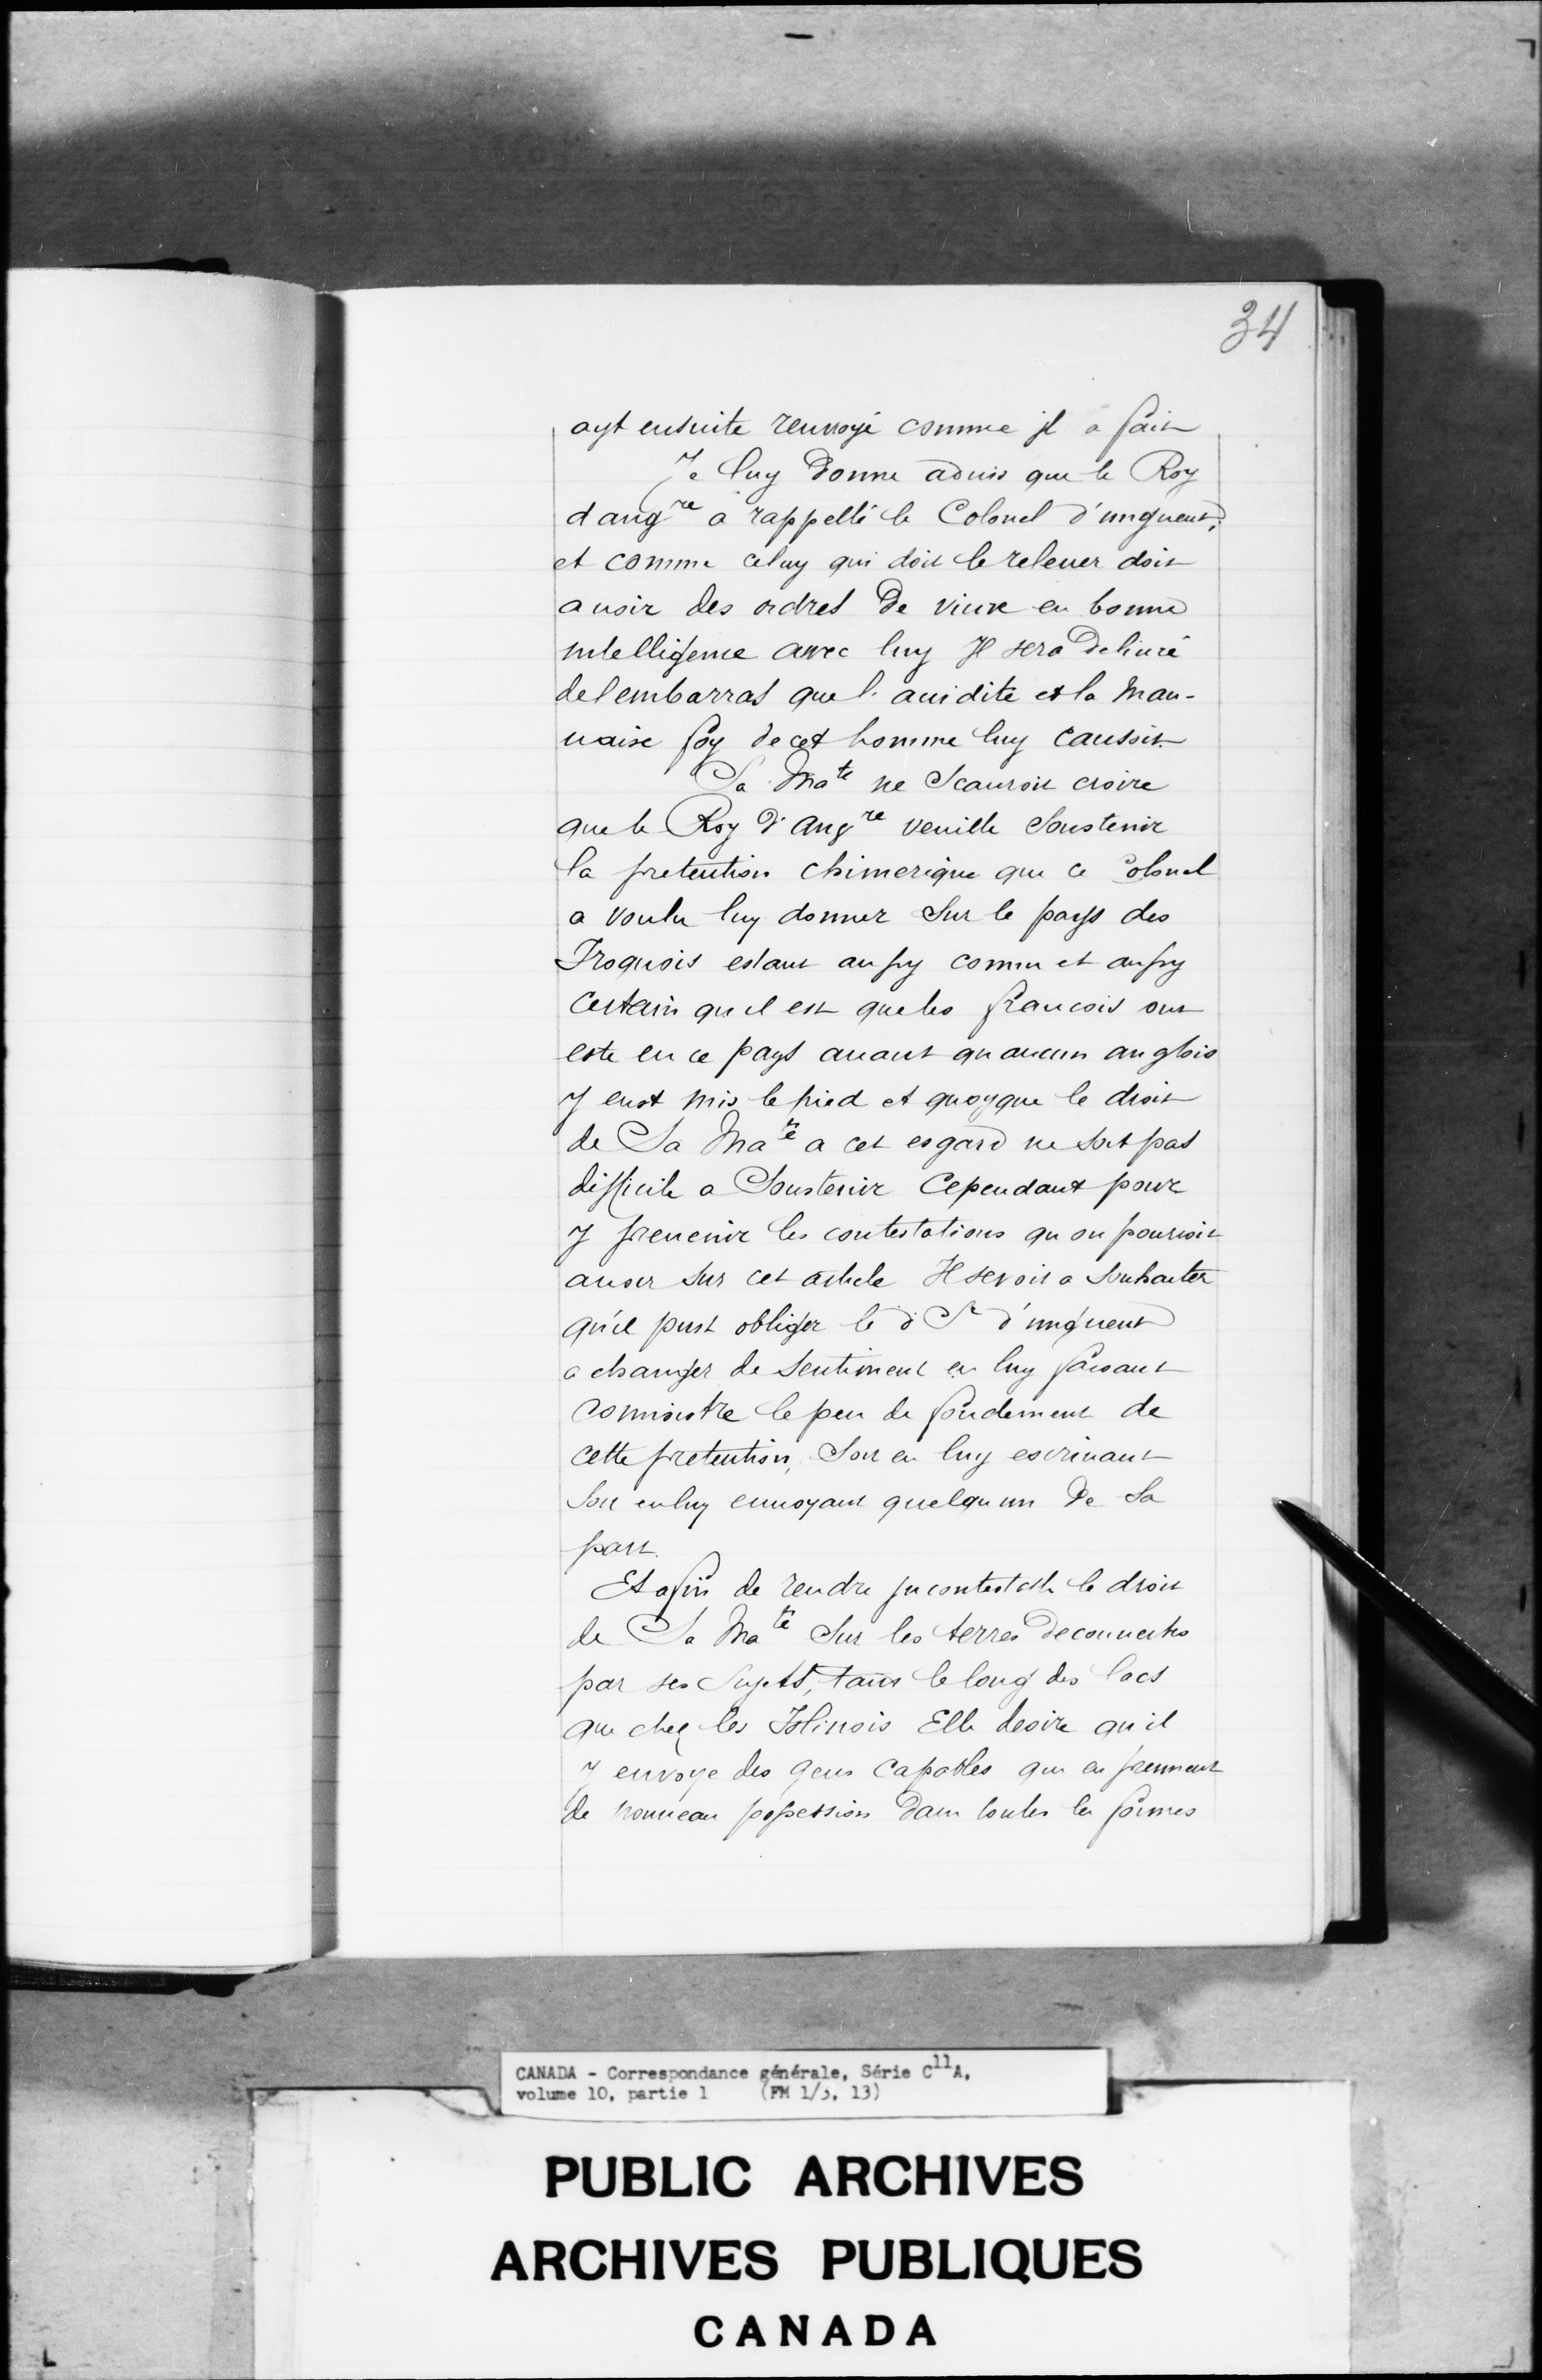 34
ayt ensuite renvoyé comme jl a fait
Je luy donne aduis que le Roy
d ang^re a rappellé le Colonel d'unguent,
et comme celuy qui doit le releuer doit
auoir des ordres de viure en bonne
intelligence avec luy Il sera deliuré
de l embarras que l. auidite et la mau-
uaise foy de cet homme luy causoit
Sa Ma^te ne Scauroit croire
que le Roy d'ang^re veuille Soustenir
la pretention chimerique que ce Colonel
a voulu luy donner Sur le pays des
Iroquois estant aussy connu et aussy
certain qu il est que les francois ont
este en ce pays auant qu aucun anglois
y eust mis le pied et quoyque le droit
de Sa Ma^te a cet esgard ne soit pas
difficile a Soustenir Cependant pour
y preuenir les contestations qu on pourroit
auoir sur cet article Il seroit a souhaiter
qu'il pust obliger le d S^r d'unguent
a changer de sentiment en luy faisant
connoistre le peu de fondement de
cette pretention, Soit en luy escriuant
Soit en luy enuoyant quelqu un de Sa
part.
Et afin de rendre jncontestable le droit
de Sa Ma^te Sur les terres decouuertes
par ses Sujets, tant le long des lacs
que chez les Islinois Elle desire qu'il
y envoye des gens capables qui en prennent
de nouueau possession dans toutes les formes
CANADA - Correspondance générale, Série C^11A,
volume 10, partie 1 (FM 1/3, 13)
PUBLIC ARCHIVES
ARCHIVES PUBLIQUES
CANADA